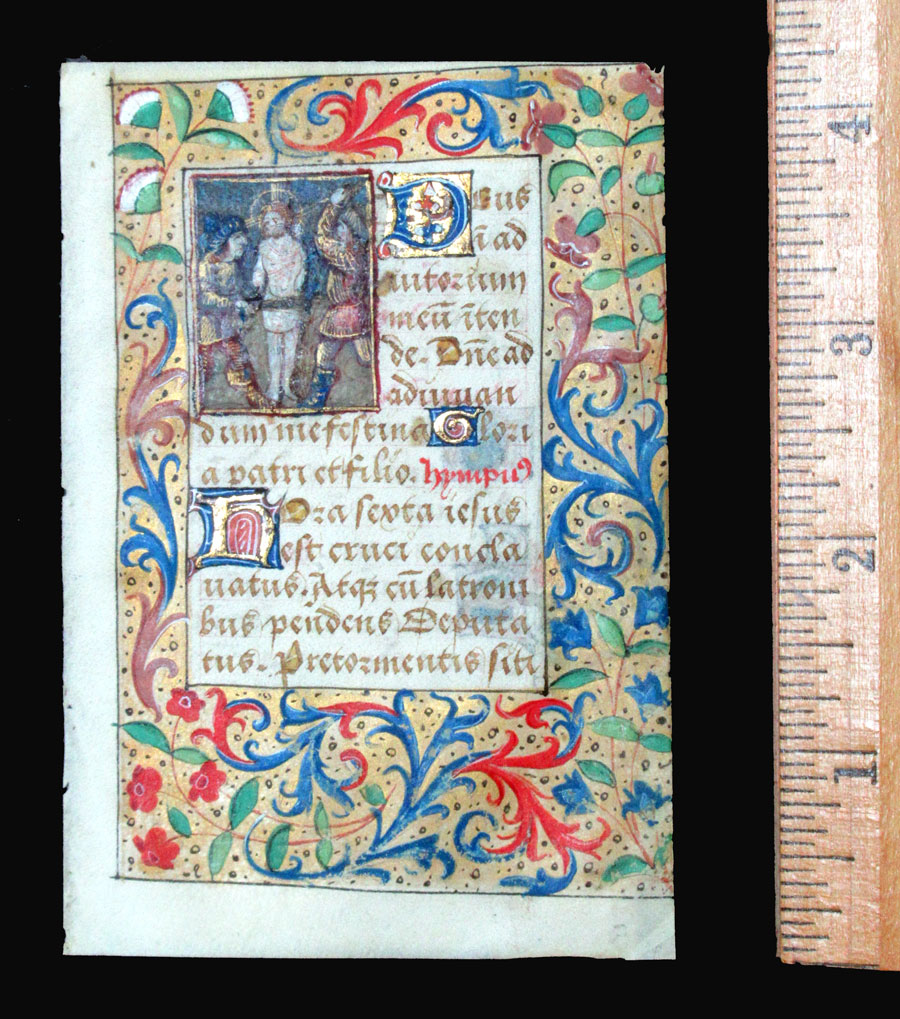 Deus
ī ad
iutorium
meū īten
de. Dn̄e ad
adiuuan
dum me festina Glori
a patri et filio. hympnꝰ
Hora sexta iesus
est cruci concla
uatus. Atqꝫ cū latroni
bus pēdens Deputa
tus. Pre tormentis siti
4
3
2
1